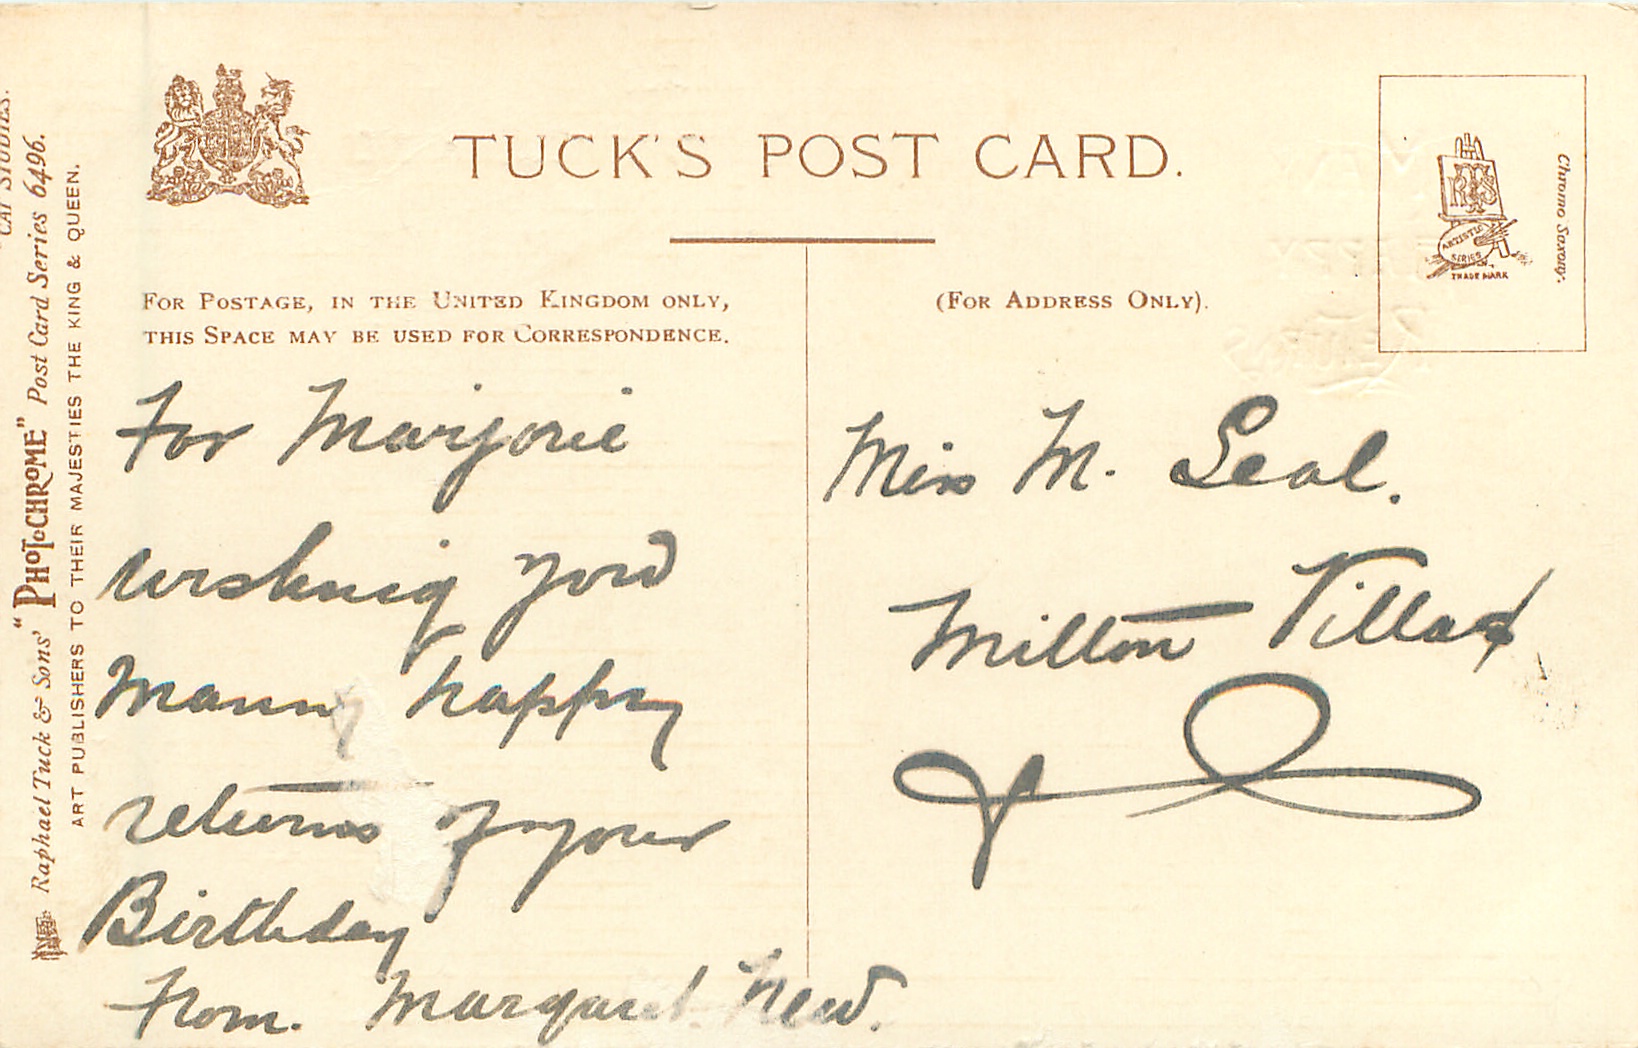 TUCK'S POST CARD.
FOR POSTAGE, IN THE UNITED KINGDOM ONLY,
THIS SPACE MAY BE USED FOR CORRESPONDENCE.
(FOR ADDRESS ONLY).
For Marjorie
wishing you
Many happy
returns of your
Birthday
From. Margaret New.
Miss M. Seal.
Milton Villa
"CAT STUDIES.
Raphael Tuck & Sons' "PHOTOCHROME" Post Card Series 6496.
ART PUBLISHERS TO THEIR MAJESTIES THE KING & QUEEN.
RTS
ARTISTIC
SERIES
TRADE MARK
Chromo Saxony.
MANY
HAPPY
RETURNS